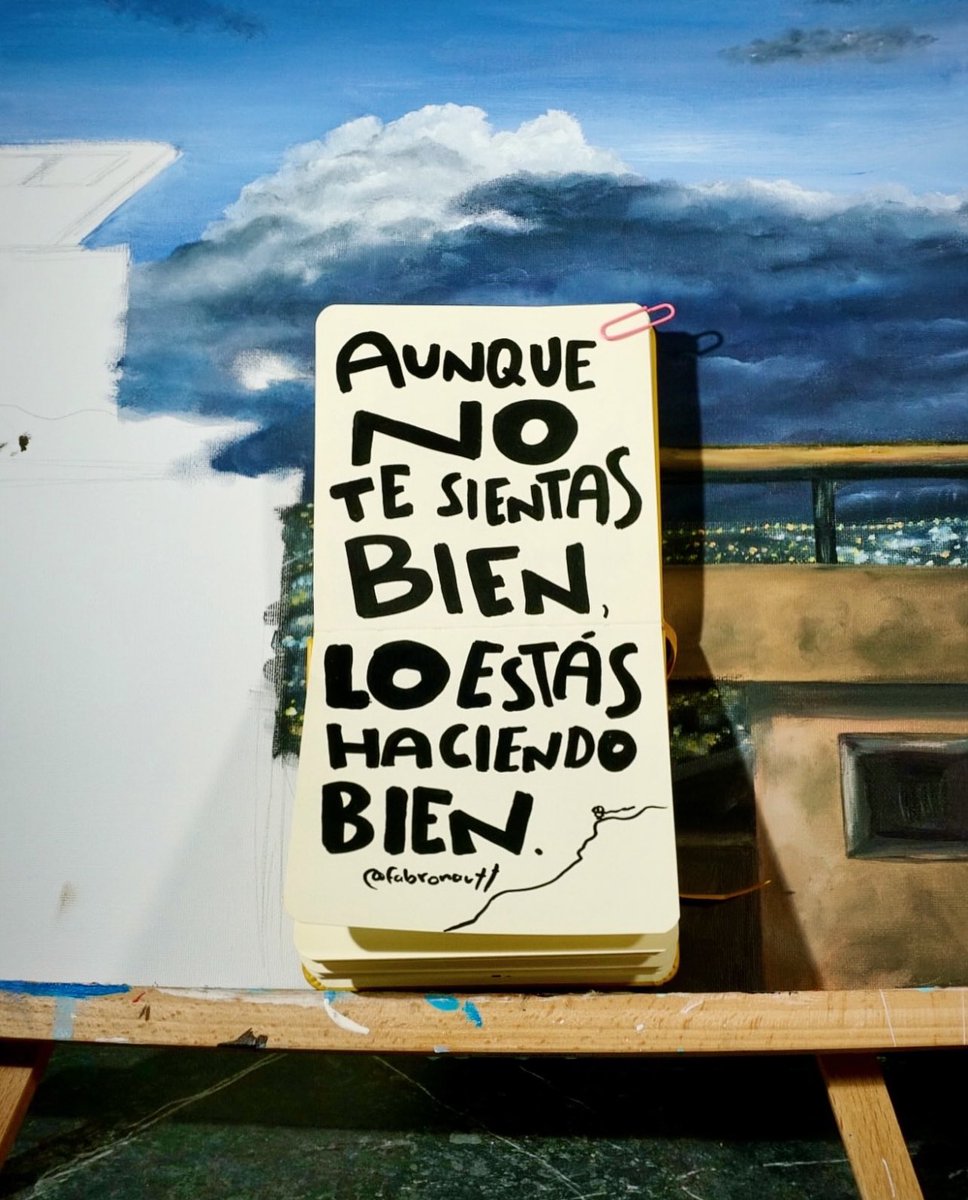 AUNQUE
NO
TE SIENTAS
BIEN,
LO ESTÁS
HACIENDO
BIEN.
@fabronautt